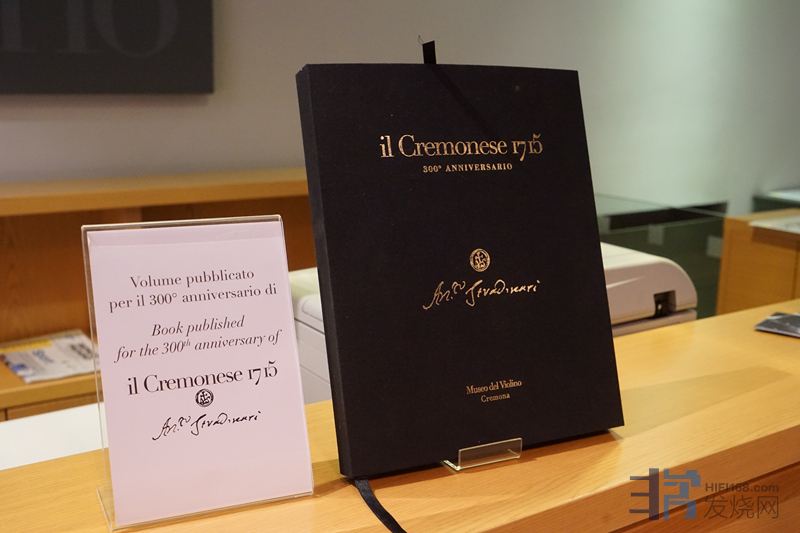 il Cremonese 1715
300° ANNIVERSARIO
Ant.o Stradivari
Museo del Violino
Cremona
Volume pubblicato
per il 300° anniversario di
Book published
for the 300th anniversary of
il Cremonese 1715
Ant.o Stradivari
HIFI168.com
发烧网